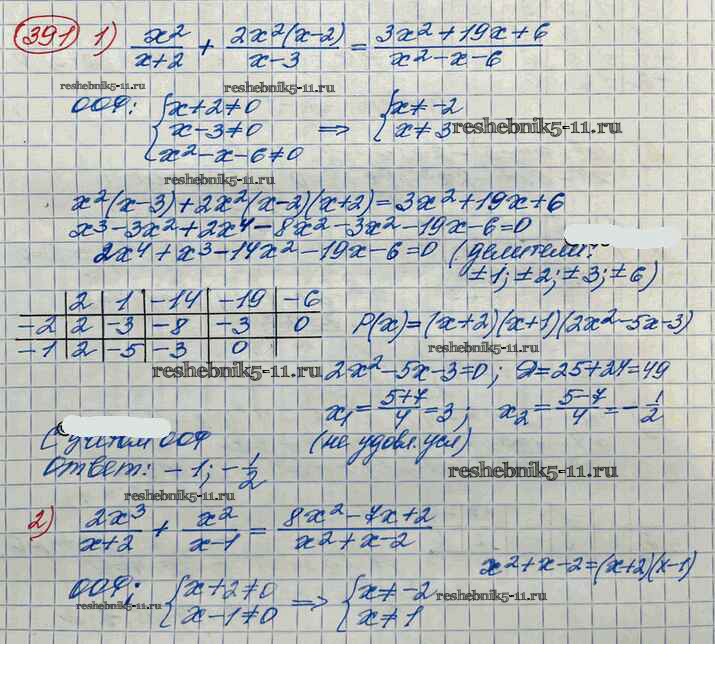 391 1) x²/(x+2) + 2x²(x-2)/(x-3) = (3x²+19x+6)/(x²-x-6)
reshebnik5-11.ru reshebnik5-11.ru
ООФ: { x+2≠0 ⇒ { x≠-2
x-3≠0 x≠3 reshebnik5-11.ru
x²-x-6≠0
reshebnik5-11.ru
x²(x-3)+2x²(x-2)(x+2)=3x²+19x+6
x³-3x²+2x⁴-8x²-3x²-19x-6=0
2x⁴+x³-14x²-19x-6=0 (делители:
±1; ±2; ±3; ±6)
| 2 | 1 | -14 | -19 | -6
-2 | 2 | -3 | -8 | -3 | 0 P(x)=(x+2)(x+1)(2x²-5x-3)
-1 | 2 | -5 | -3 | 0 reshebnik5-11.ru
reshebnik5-11.ru 2x²-5x-3=0; D=25+24=49
x₁=(5+7)/4=3; x₂=(5-7)/4=-1/2
С учётом ООФ (не удовл. усл)
Ответ: -1; -1/2 reshebnik5-11.ru
reshebnik5-11.ru
2) 2x³/(x+2) + x²/(x-1) = (8x²-7x+2)/(x²+x-2)
x²+x-2=(x+2)(x-1)
ООФ: { x+2≠0 ⇒ { x≠-2 reshebnik5-11.ru
reshebnik5-11.ru x-1≠0 x≠1